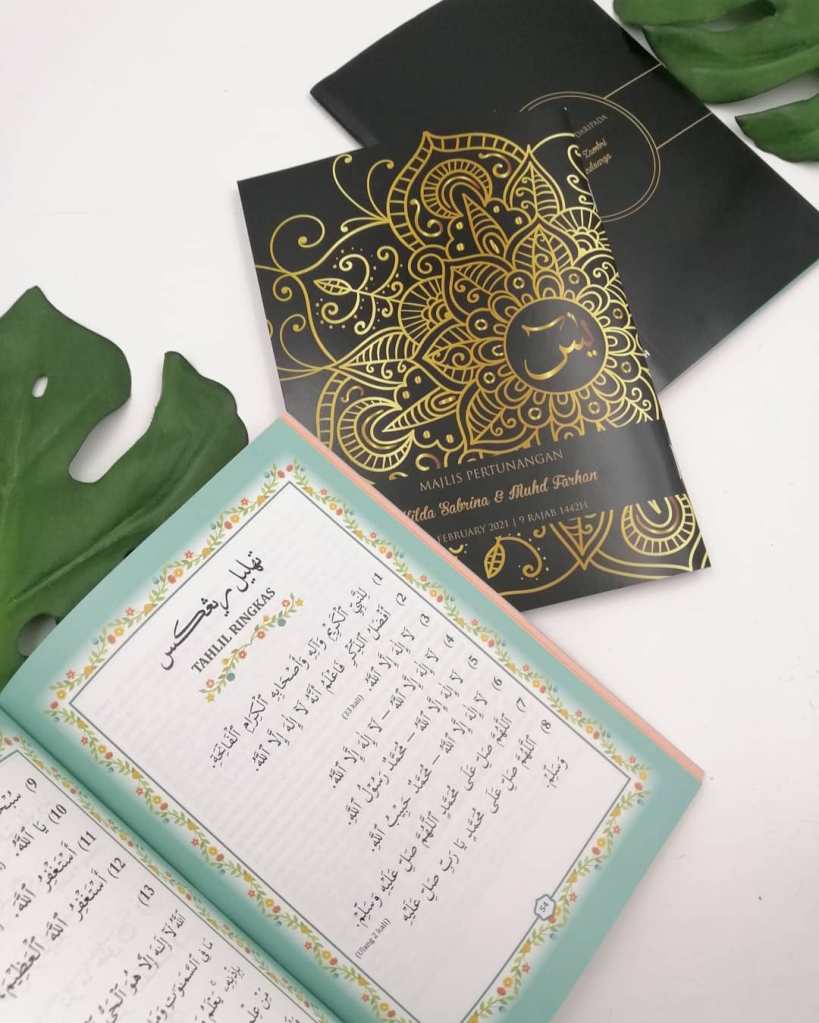 DARIPADA
يس
MAJLIS PERTUNANGAN
Hilda Sabrina & Muhd Farhan
FEBRUARY 2021 | 9 RAJAB 1442H
تهليل ريڠکس
TAHLIL RINGKAS
1) لِلنَّبِيِّ ٱلْكَرِيْمِ وَآلِهِ وَأَصْحَابِهِ ٱلْكِرَامِ ٱلْفَاتِحَة.
2) أَفْضَلُ ٱلذِّكْرِ فَاعْلَمْ أَنَّهُ لَا إِلٰهَ إِلَّا ٱللّٰهُ.
3) لَا إِلٰهَ إِلَّا ٱللّٰهُ. (33 kali)
4) لَا إِلٰهَ إِلَّا ٱللّٰهُ – لَا إِلٰهَ إِلَّا ٱللّٰهُ.
5) لَا إِلٰهَ إِلَّا ٱللّٰهُ – مُحَمَّدٌ رَسُوْلُ ٱللّٰهِ.
6) لَا إِلٰهَ إِلَّا ٱللّٰهُ – مُحَمَّدٌ حَبِيْبُ ٱللّٰهِ.
7) ٱللّٰهُمَّ صَلِّ عَلَى مُحَمَّدٍ ٱللّٰهُمَّ صَلِّ عَلَيْهِ وَسَلِّمْ. (Ulang 2 kali)
8) ٱللّٰهُمَّ صَلِّ عَلَى مُحَمَّدٍ يَا رَبِّ صَلِّ عَلَيْهِ
وَسَلِّمْ.
54
9)
10) يَا ٱللّٰهُ.
11) أَسْتَغْفِرُ ٱللّٰهَ.
12) أَسْتَغْفِرُ ٱللّٰهَ ٱلْعَظِيْمَ
13)
ٱللّٰهُ لَا إِلٰهَ إِلَّا هُوَ ٱلْحَيُّ
مَا فِي ٱلسَّمٰوٰتِ وَمَا